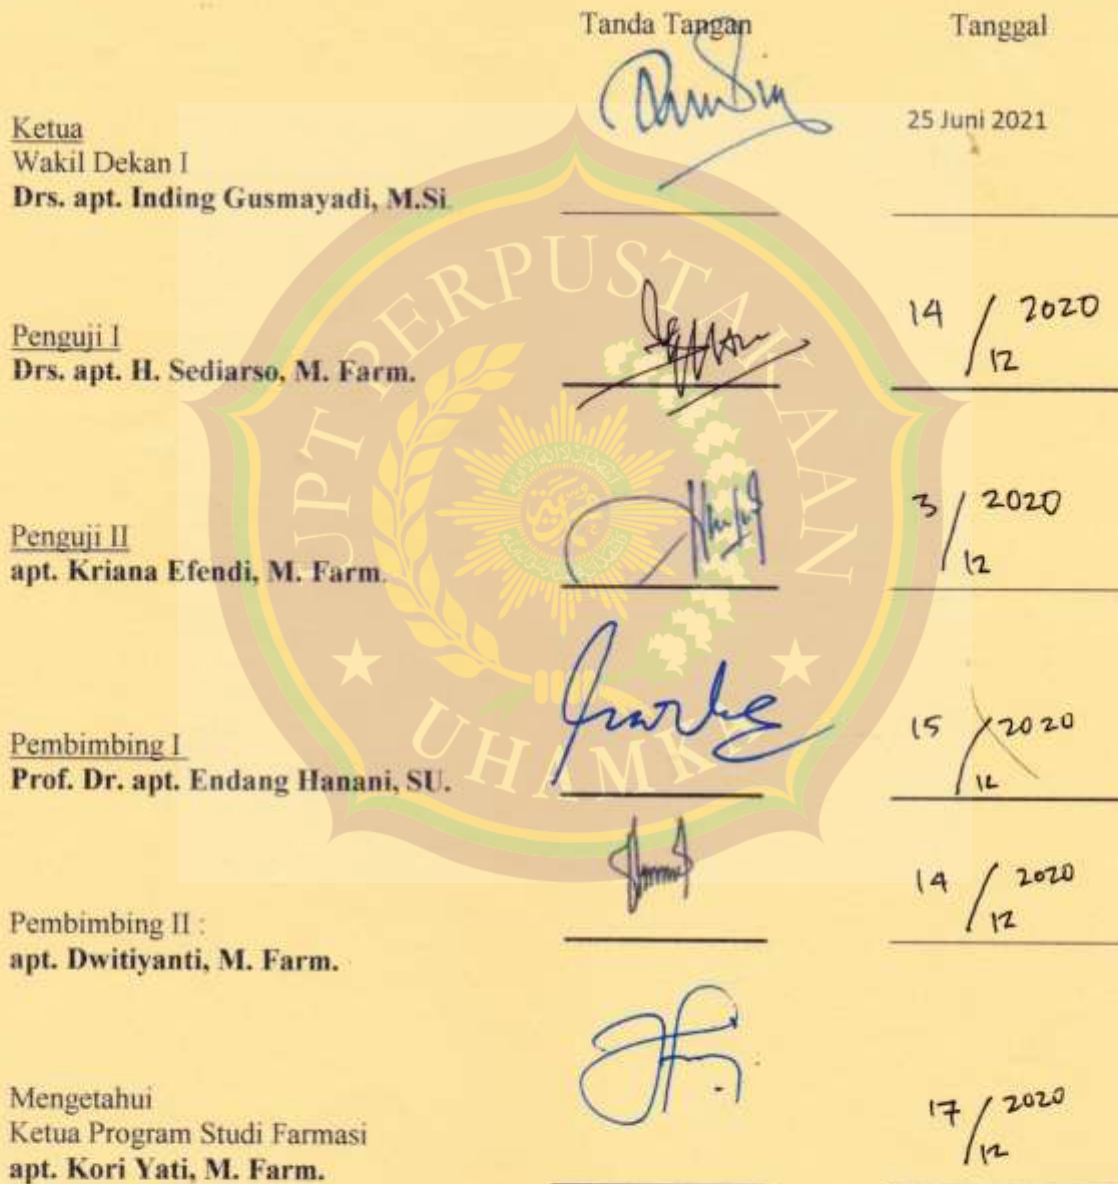 Tanda Tangan Tanggal
Ketua
Wakil Dekan I
Drs. apt. Inding Gusmayadi, M.Si.
25 Juni 2021
Penguji I
Drs. apt. H. Sediarso, M. Farm.
14 / 12 2020
Penguji II
apt. Kriana Efendi, M. Farm.
3 / 12 2020
Pembimbing I
Prof. Dr. apt. Endang Hanani, SU.
15 / 12 2020
Pembimbing II :
apt. Dwitiyanti, M. Farm.
14 / 12 2020
Mengetahui
Ketua Program Studi Farmasi
apt. Kori Yati, M. Farm.
17 / 12 2020
UPT PERPUSTAKAAN
UHAMKA